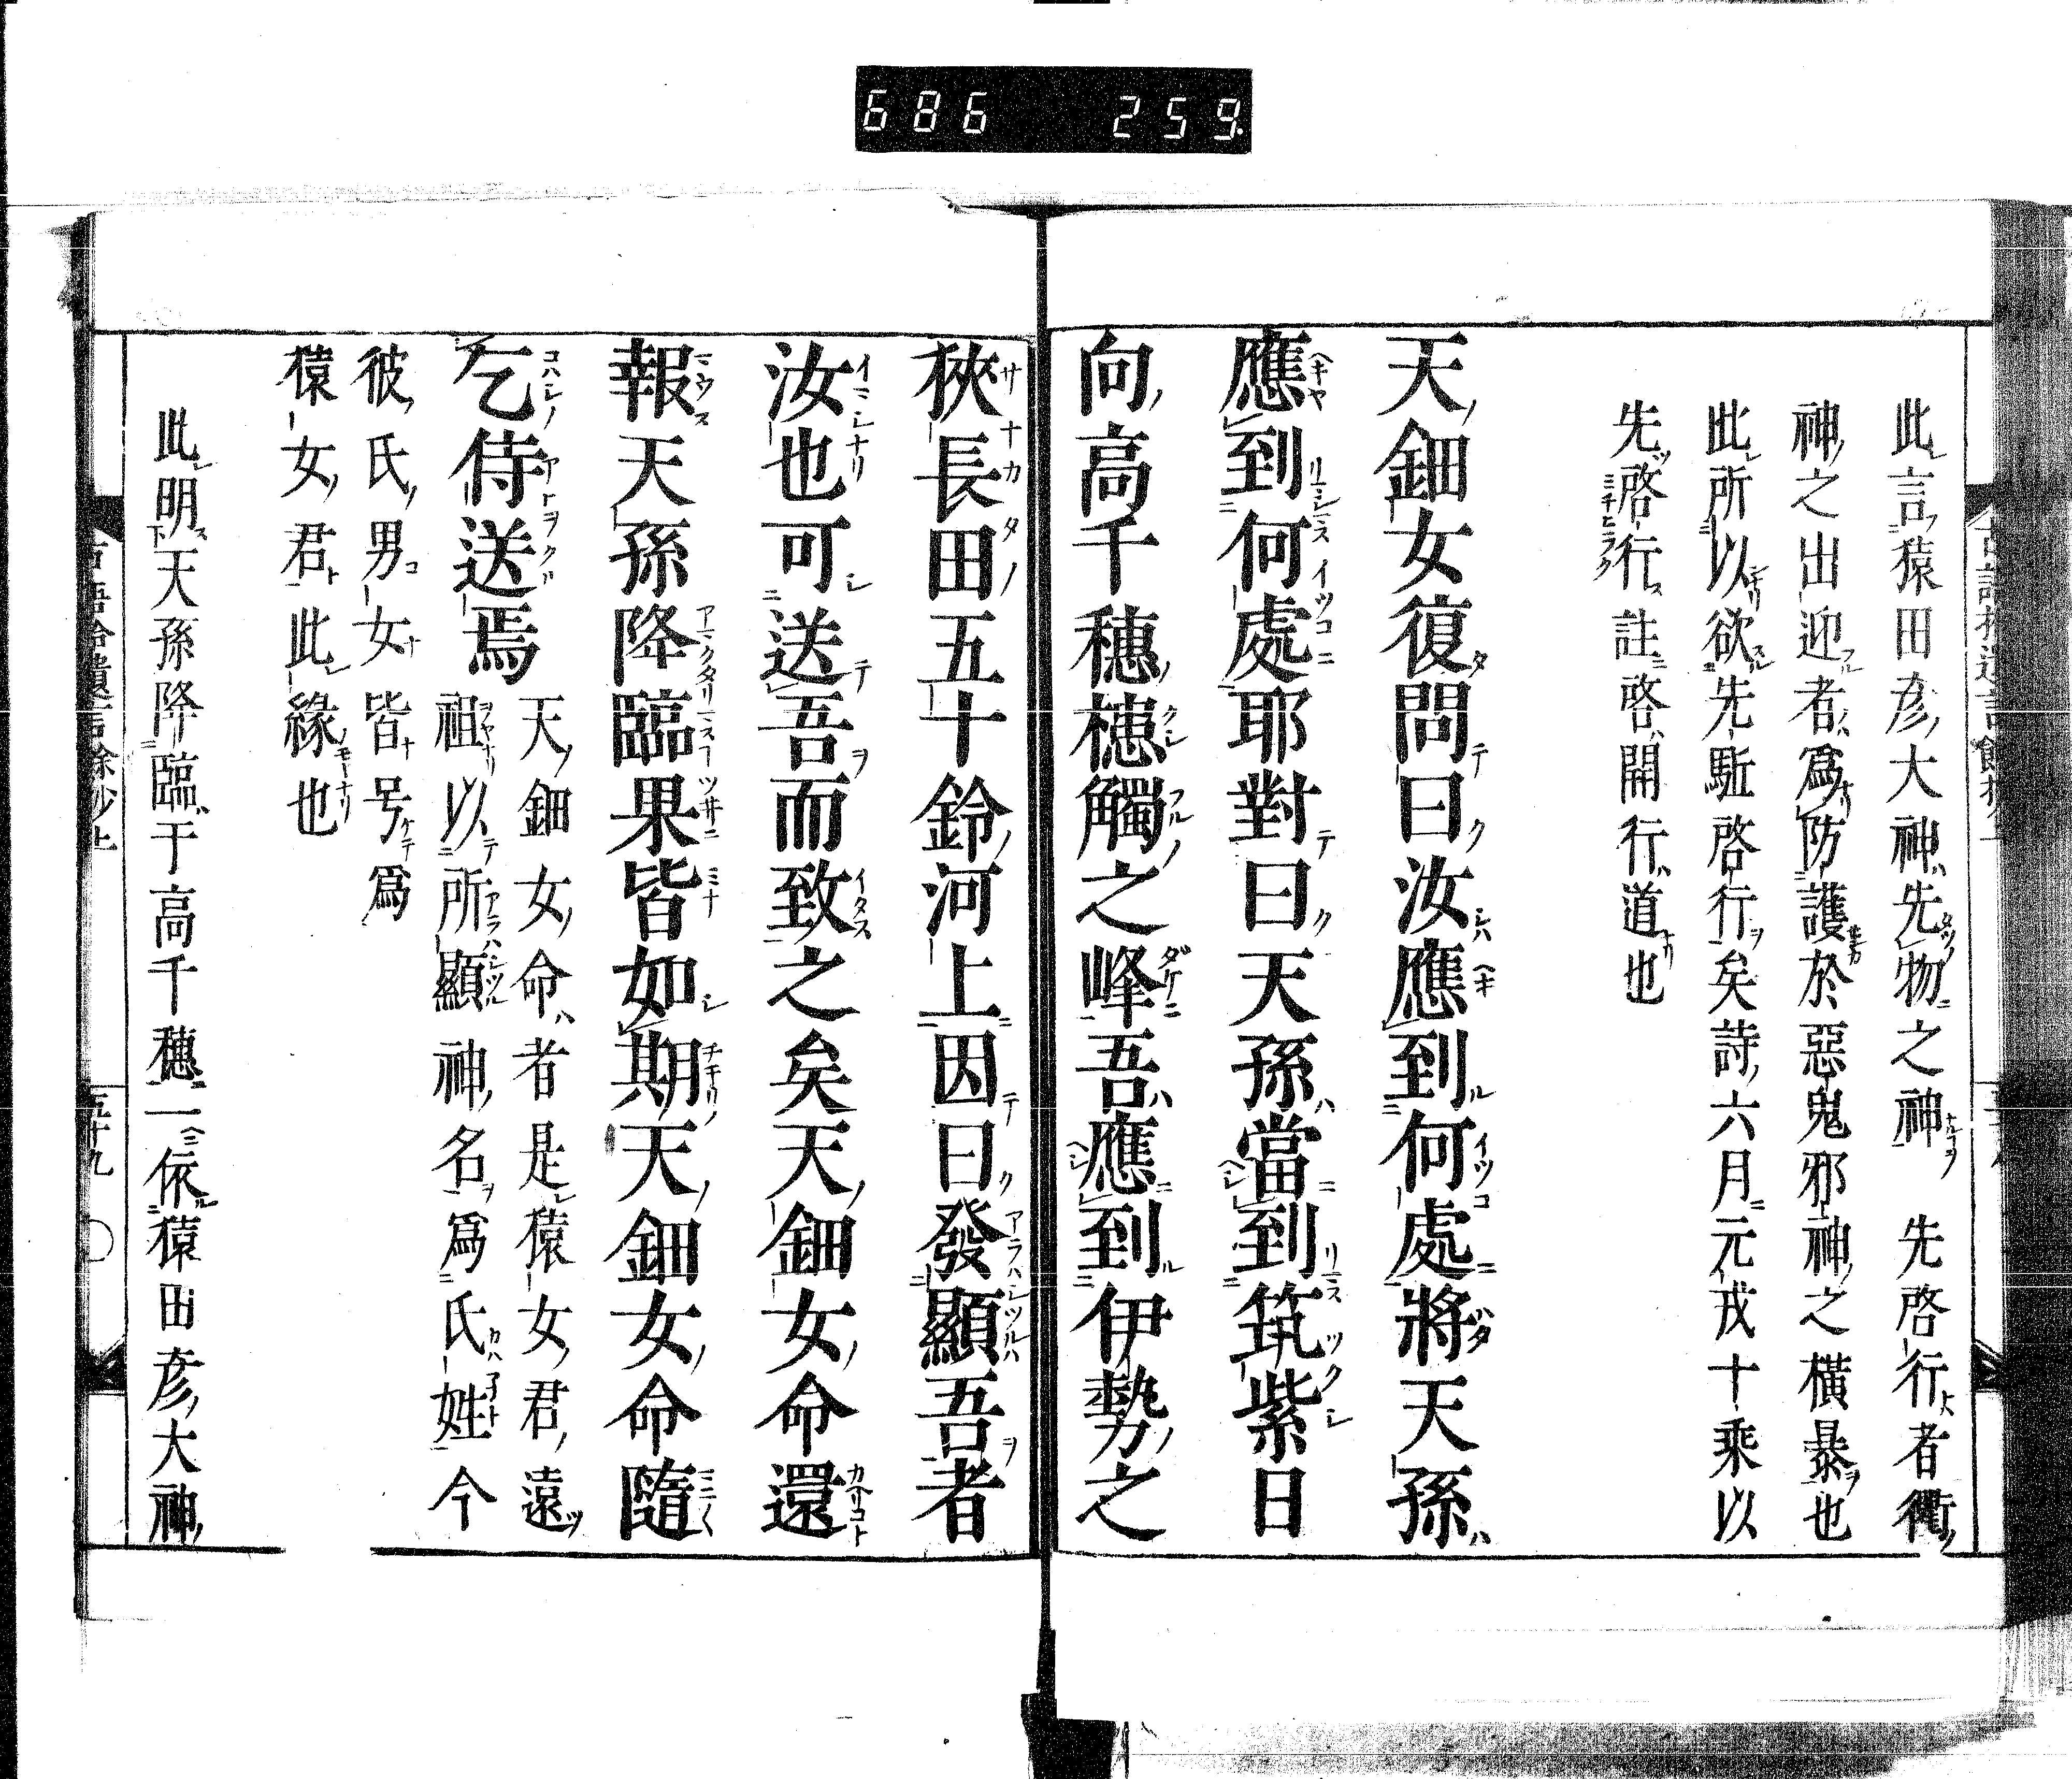 686 259
此言猿田彥大神先物之神 先啓行者衢
神之出迎者爲防護於惡鬼邪神之橫暴也
此所以欲先駈啓行矣詩六月元戎十乘以
先啓行註啓開行道也
天鈿女復問曰汝應到何處將天孫
應到何處耶對曰天孫當到筑紫日
向高千穗槵觸之峰吾應到伊勢之
狹長田五十鈴河上因曰發顯吾者
汝也可送吾而致之矣天鈿女命還
報天孫降臨果皆如期天鈿女命隨
乞侍送焉
天鈿女命者是猿女君遠
祖以所顯神名爲氏姓今
彼氏男女皆号爲
猿女君此緣也
此明天孫降臨于高千穗一依猿田彥大神
古語拾遺言餘抄上 五十九